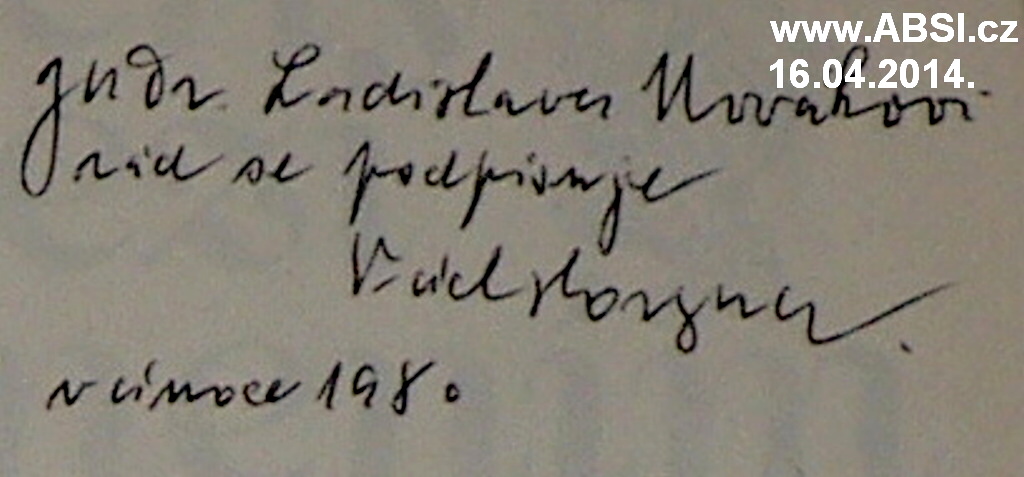 www.ABSI.cz
16.04.2014.
JUDr. Ladislavu Novákovi
rád se podpisuje
vánoce 1980